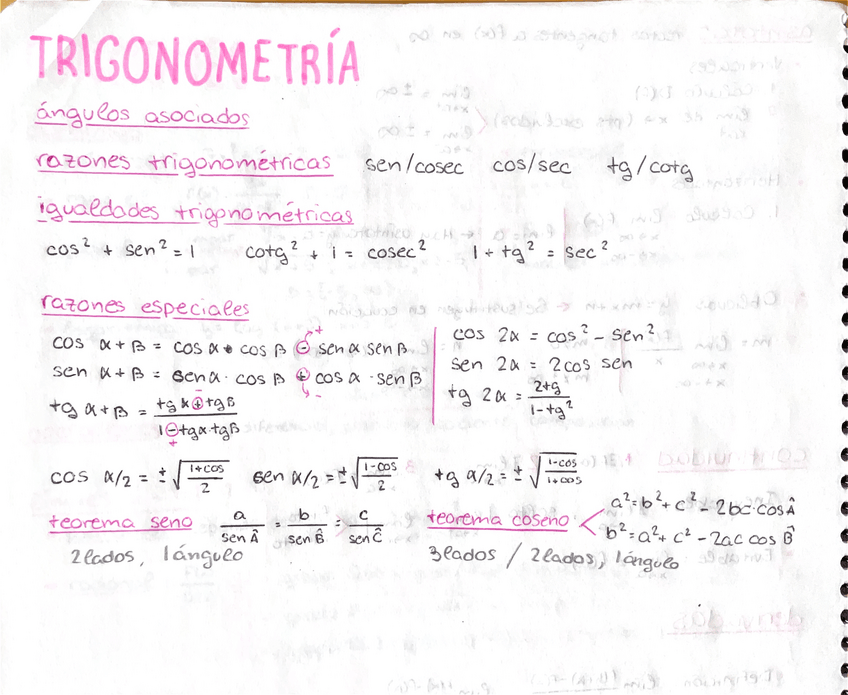 TRIGONOMETRÍA
ángulos asociados
razones trigonométricas sen/cosec cos/sec tg/cotg
igualdades trigonométricas
cos² + sen² = 1 cotg² + 1 = cosec² 1 + tg² = sec²
razones especiales
cos α + β = cos α · cos β ⊖ sen α sen β
+
sen α + β = sen α · cos β ⊕ cos α · sen β
-
tg α + β = (tg α ⊕ tg β) / (1 ⊖ tg α tg β)
-
+
cos 2α = cos² - sen²
sen 2α = 2 cos sen
tg 2α = 2tg / (1 - tg²)
cos α/2 = ± √((1+cos)/2) sen α/2 = ± √((1-cos)/2) tg α/2 = ± √((1-cos)/(1+cos))
teorema seno a/sen Â = b/sen B̂ = c/sen Ĉ
2 lados, 1 ángulo
teorema coseno
a² = b² + c² - 2bc · cos Â
b² = a² + c² - 2ac cos B̂
3 lados / 2 lados, 1 ángulo